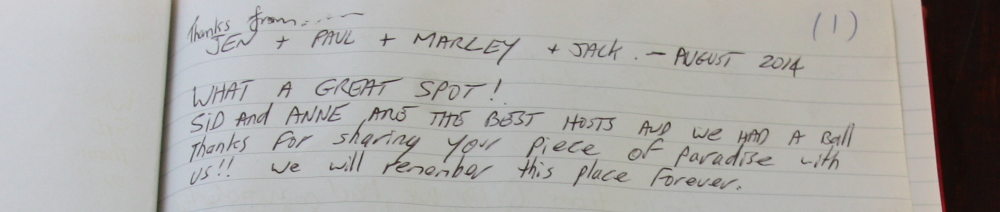 (1)
Thanks from.......
JEN + PAUL + MARLEY + JACK. - AUGUST 2014
WHAT A GREAT SPOT!
SID And ANNE ARE THE BEST HOSTS AND we HAD A Ball
Thanks For sharing your piece of Paradise with
us!! We will remember this place Forever.